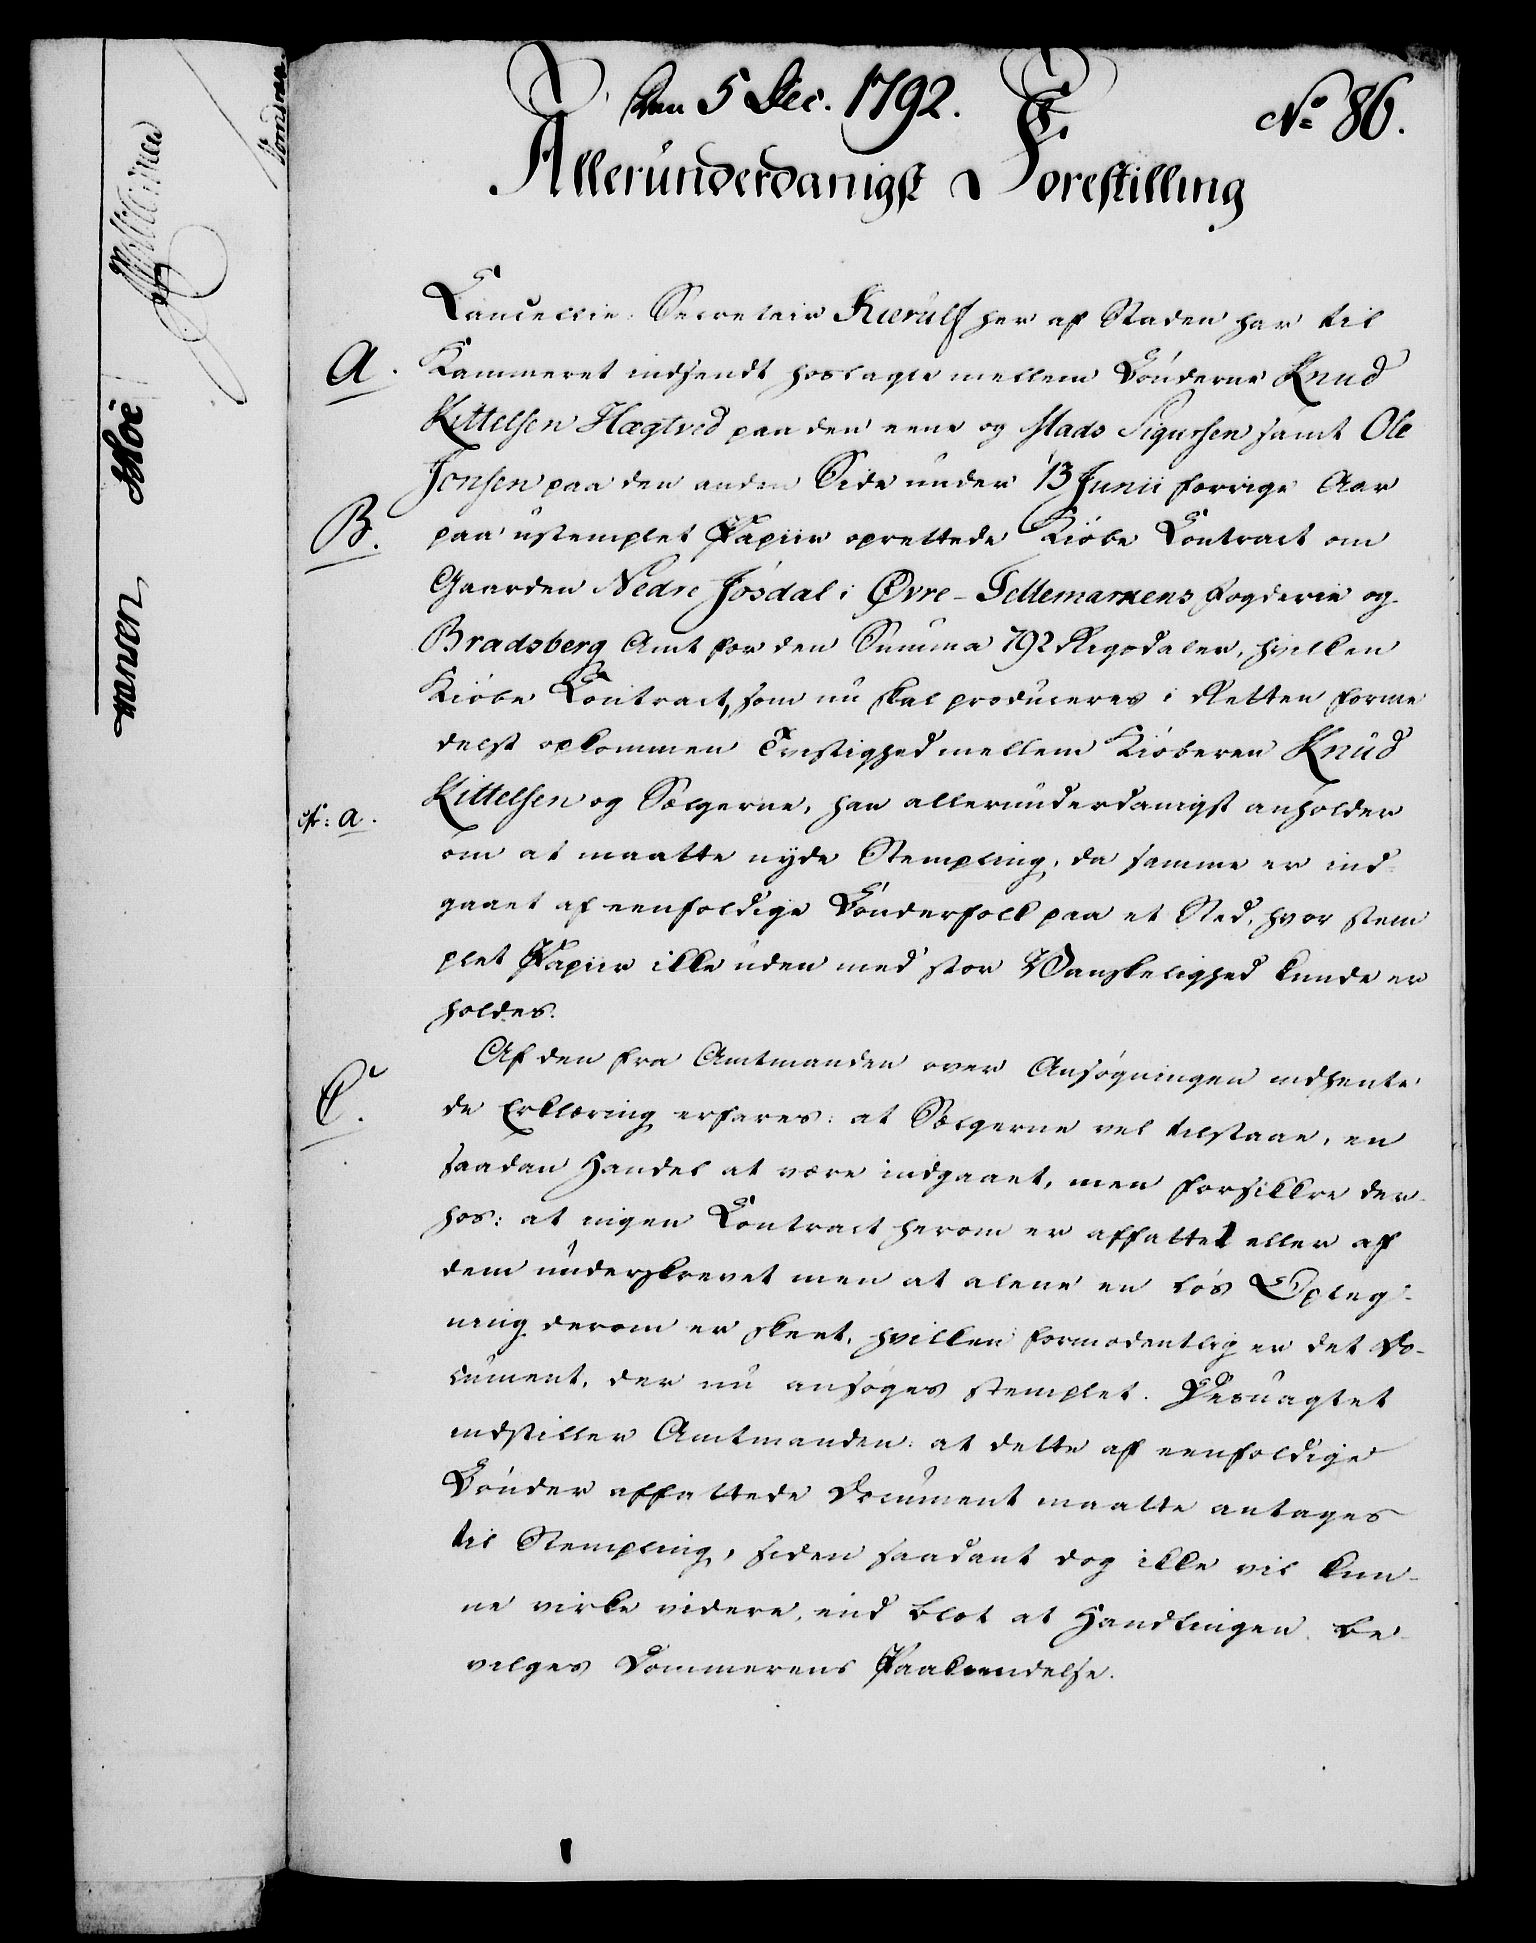 Den 5 Dec. 1792.
No 86.
Allerunderdanigst Forestilling
Cancellie-Secretair Kierulf her af Staden har til
A.
Kammeret indsendt hoslagte mellem Bønderne Knud
Kittelsen Hægtved paa den eene og Mads Sigursen samt Ole
Jonsen paa den anden Side under 13 Junii forrige Aar
B.
paa ustemplet Papiir oprettede Kiøbe Contract om
Gaarden Nedre Josdal i Øvre-Tellemarkens Fogderie og
Bradsberg Amt for den Summa 792 Rigsdaler, hvilken
Kiøbe Contract, som nu skal produceres i Retten forme
delst opkommen Tvistighed mellem Kiøberen Knud
cfr: a.
Kittelsen og Sælgerne, han allerunderdanigst anholder
om at maatte nyde Stempling, da samme er ind-
gaaet af eenfoldige Bønderfolk paa et Sted, hvor stem
plet Papiir ikke uden med stor Vanskelighed kunde er
holdes.
Af den fra Amtmanden over Ansøgningen indhente
C.
de Erklæring erfares: at Sælgerne vel tilstaae, en
saadan Handel at være indgaaet, men forsikkre der-
hos: at ingen Contract herom er affattet eller af
dem underskrevet men at alene en løs Opteg-
ning derom er skeet, hvilken formodentlig er det Do-
cument, der nu ansøges stemplet. Desuagtet
indstiller Amtmanden: at dette af eenfoldige
Bønder affattede Document maatte antages
til Stempling, siden saadant dog ikke vil kun-
ne virke videre, end blot at Handlingen be-
vilges Dommerens Paakiendelse.